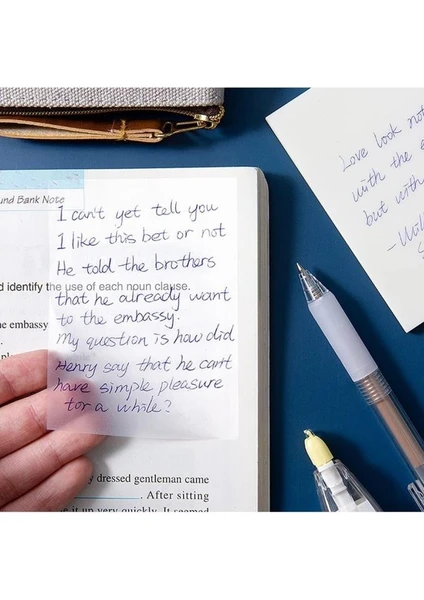 und Bank Note
I can't yet tell you
I like this bet or not
He told the brothers
d identify the use of each noun clause.
that he already want
to the embassy.
My question is how did
Henry say that he can't
have simple pleasure
for a while?
he embassy
y dressed gentleman came
. After sitting
it up very quickly. It seemed
Love look not
with the
but with